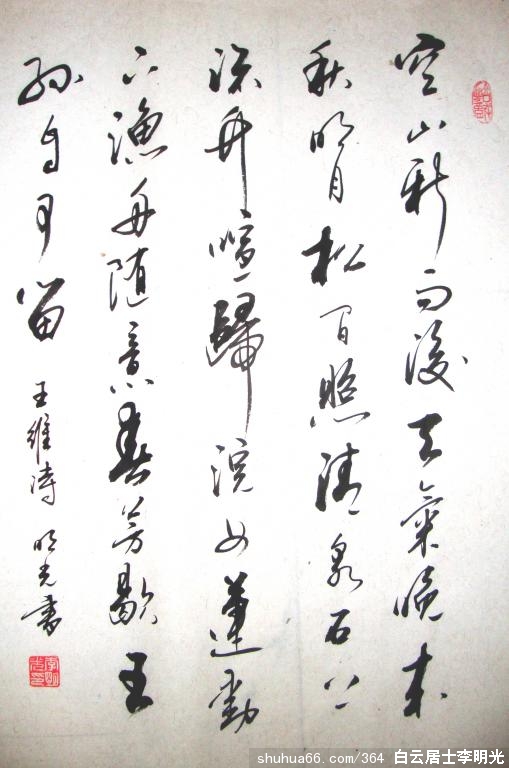 空山新雨後天氣晚来
秋明月松間照清泉石上
流竹喧歸浣女蓮動
下漁舟随意春芳歇王
孫自可留
王維詩 明光書
shuhua66.com/364 白云居士李明光